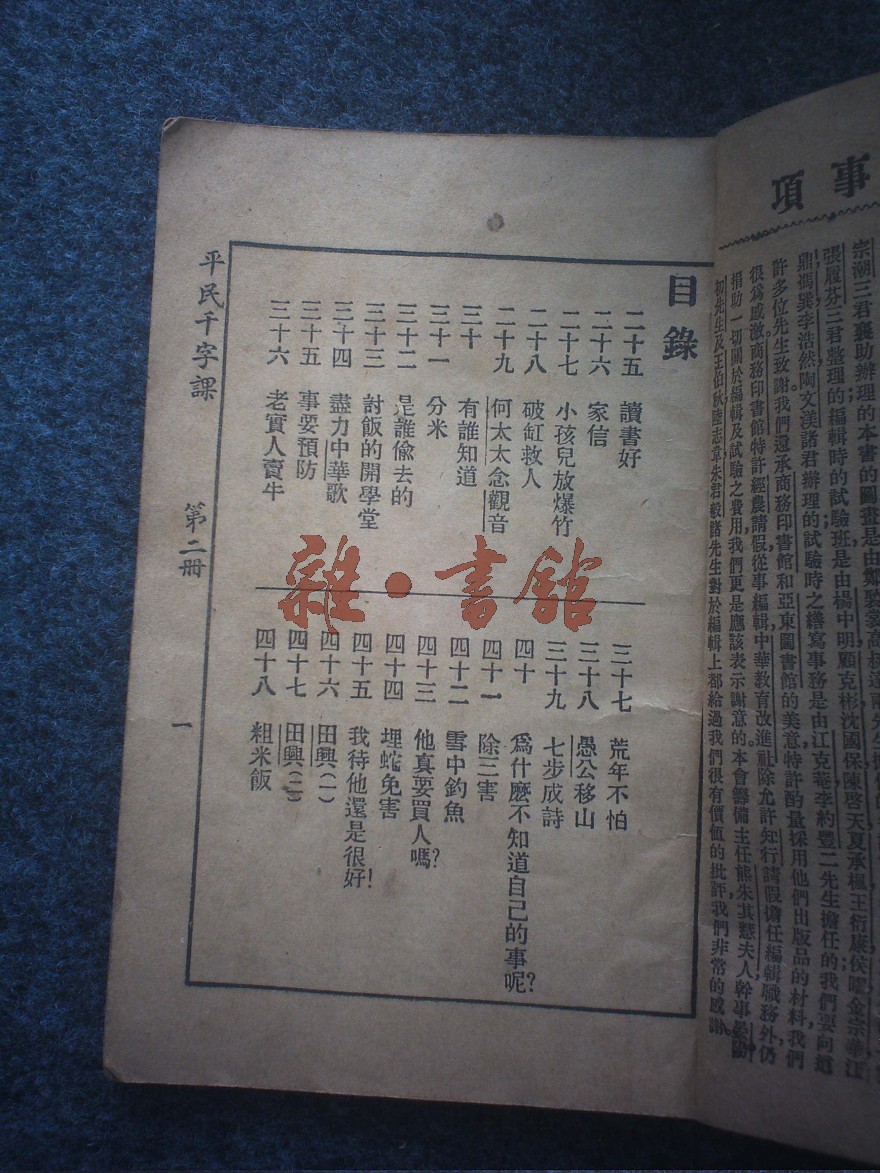 目錄
二十五 讀書好
二十六 家信
二十七 小孩兒放爆竹
二十八 破缸救人
二十九 何太太念觀音
三十 有誰知道
三十一 分米
三十二 是誰偷去的
三十三 討飯的開學堂
三十四 盡力中華歌
三十五 事要預防
三十六 老實人賣牛
三十七 荒年不怕
三十八 愚公移山
三十九 七步成詩
四十 爲什麽不知道自己的事呢?
四十一 除三害
四十二 雪中釣魚
四十三 他真要買人嗎?
四十四 埋蛇免害
四十五 我待他還是很好!
四十六 田興(一)
四十七 田興(二)
四十八 粗米飯
平民千字課 第二册 一
雜·書館
事項
宗潮三君襄助辦理的本書的圖畫是由鄭
張履芬三君整理的編輯時的試驗班是由楊中明顧克彬沈國保陳啓天夏承楓王衍康侯曜金宗華江
鼎馮巽李浩然陶文渼諸君辦理的試驗時之繕寫事務是由江克菴李約豐二先生擔任的我們要向這
許多位先生致謝我們還承商務印書館和亞東圖書館的美意特許酌量採用他們出版品的材料我們
很爲感激商務印書館特許經農請假從事編輯中華教育改進社除允許知行請假擔任編輯職務外仍
捐助一切關於編輯及試驗之費用我們更是應該表示謝意的本會籌備主任熊朱其慧夫人幹事
初先生及王伯秋陸志韋朱君毅諸先生對於編輯上都給過我們很有價値的批評我們非常的感謝